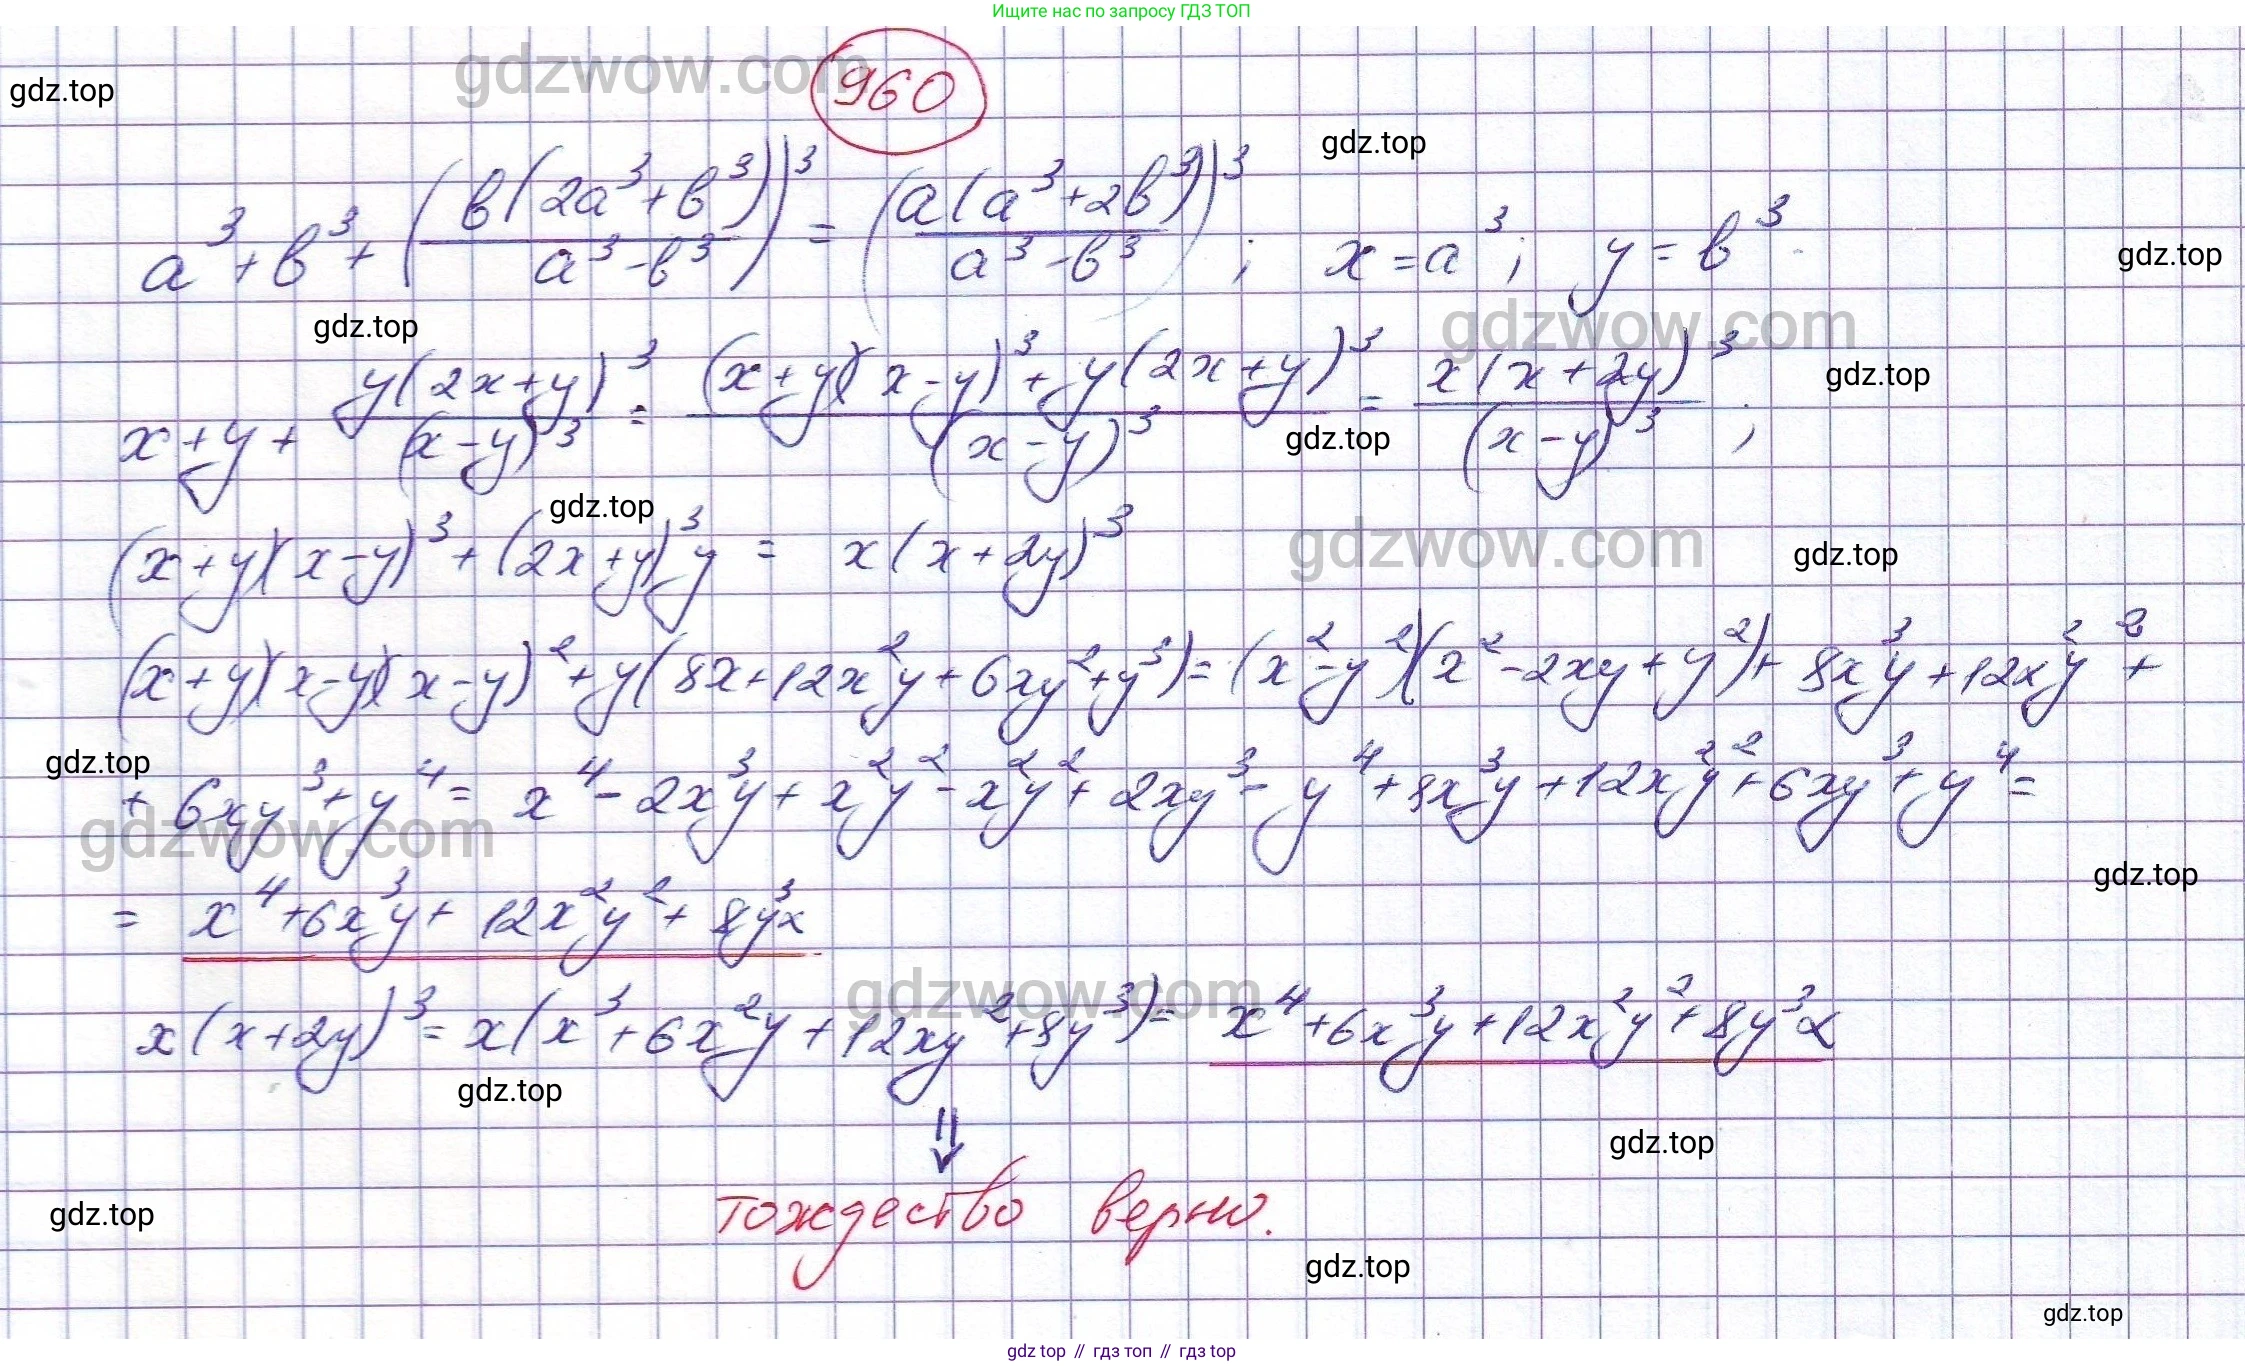 Ищите нас по запросу ГДЗ ТОП
gdzwow.com
960
gdz.top
gdz.top
a³ + b³ + (b(2a³+b³)/(a³-b³))³ = (a(a³+2b³)/(a³-b³))³ ; x = a³ ; y = b³
gdz.top
gdz.top
gdzwow.com
x+y+ y(2x+y)³/(x-y)³ = ((x+y)(x-y)³+y(2x+y)³)/(x-y)³ = x(x+2y)³/(x-y)³ ;
gdz.top
gdz.top
gdz.top
(x+y)(x-y)³+(2x+y)³y = x(x+2y)³
gdzwow.com
gdz.top
(x+y)(x-y)(x-y)²+y(8x+12x²y+6xy²+y³)=(x²-y²)(x²-2xy+y²)+8x³y+12x²y²+
gdz.top
+6xy³+y⁴= x⁴-2x³y+x²y²-x²y²+2xy³-y⁴+8x³y+12x²y²+6xy³+y⁴=
gdzwow.com
gdz.top
= x⁴+6x³y+12x²y²+8y³x
gdzwow.com
x(x+2y)³=x(x³+6x²y+12xy²+8y³)= x⁴+6x³y+12x²y²+8y³x
gdz.top
⇓
gdz.top
тождество верно.
gdz.top
gdz.top
gdz.top
gdz top // гдз топ // гдз top